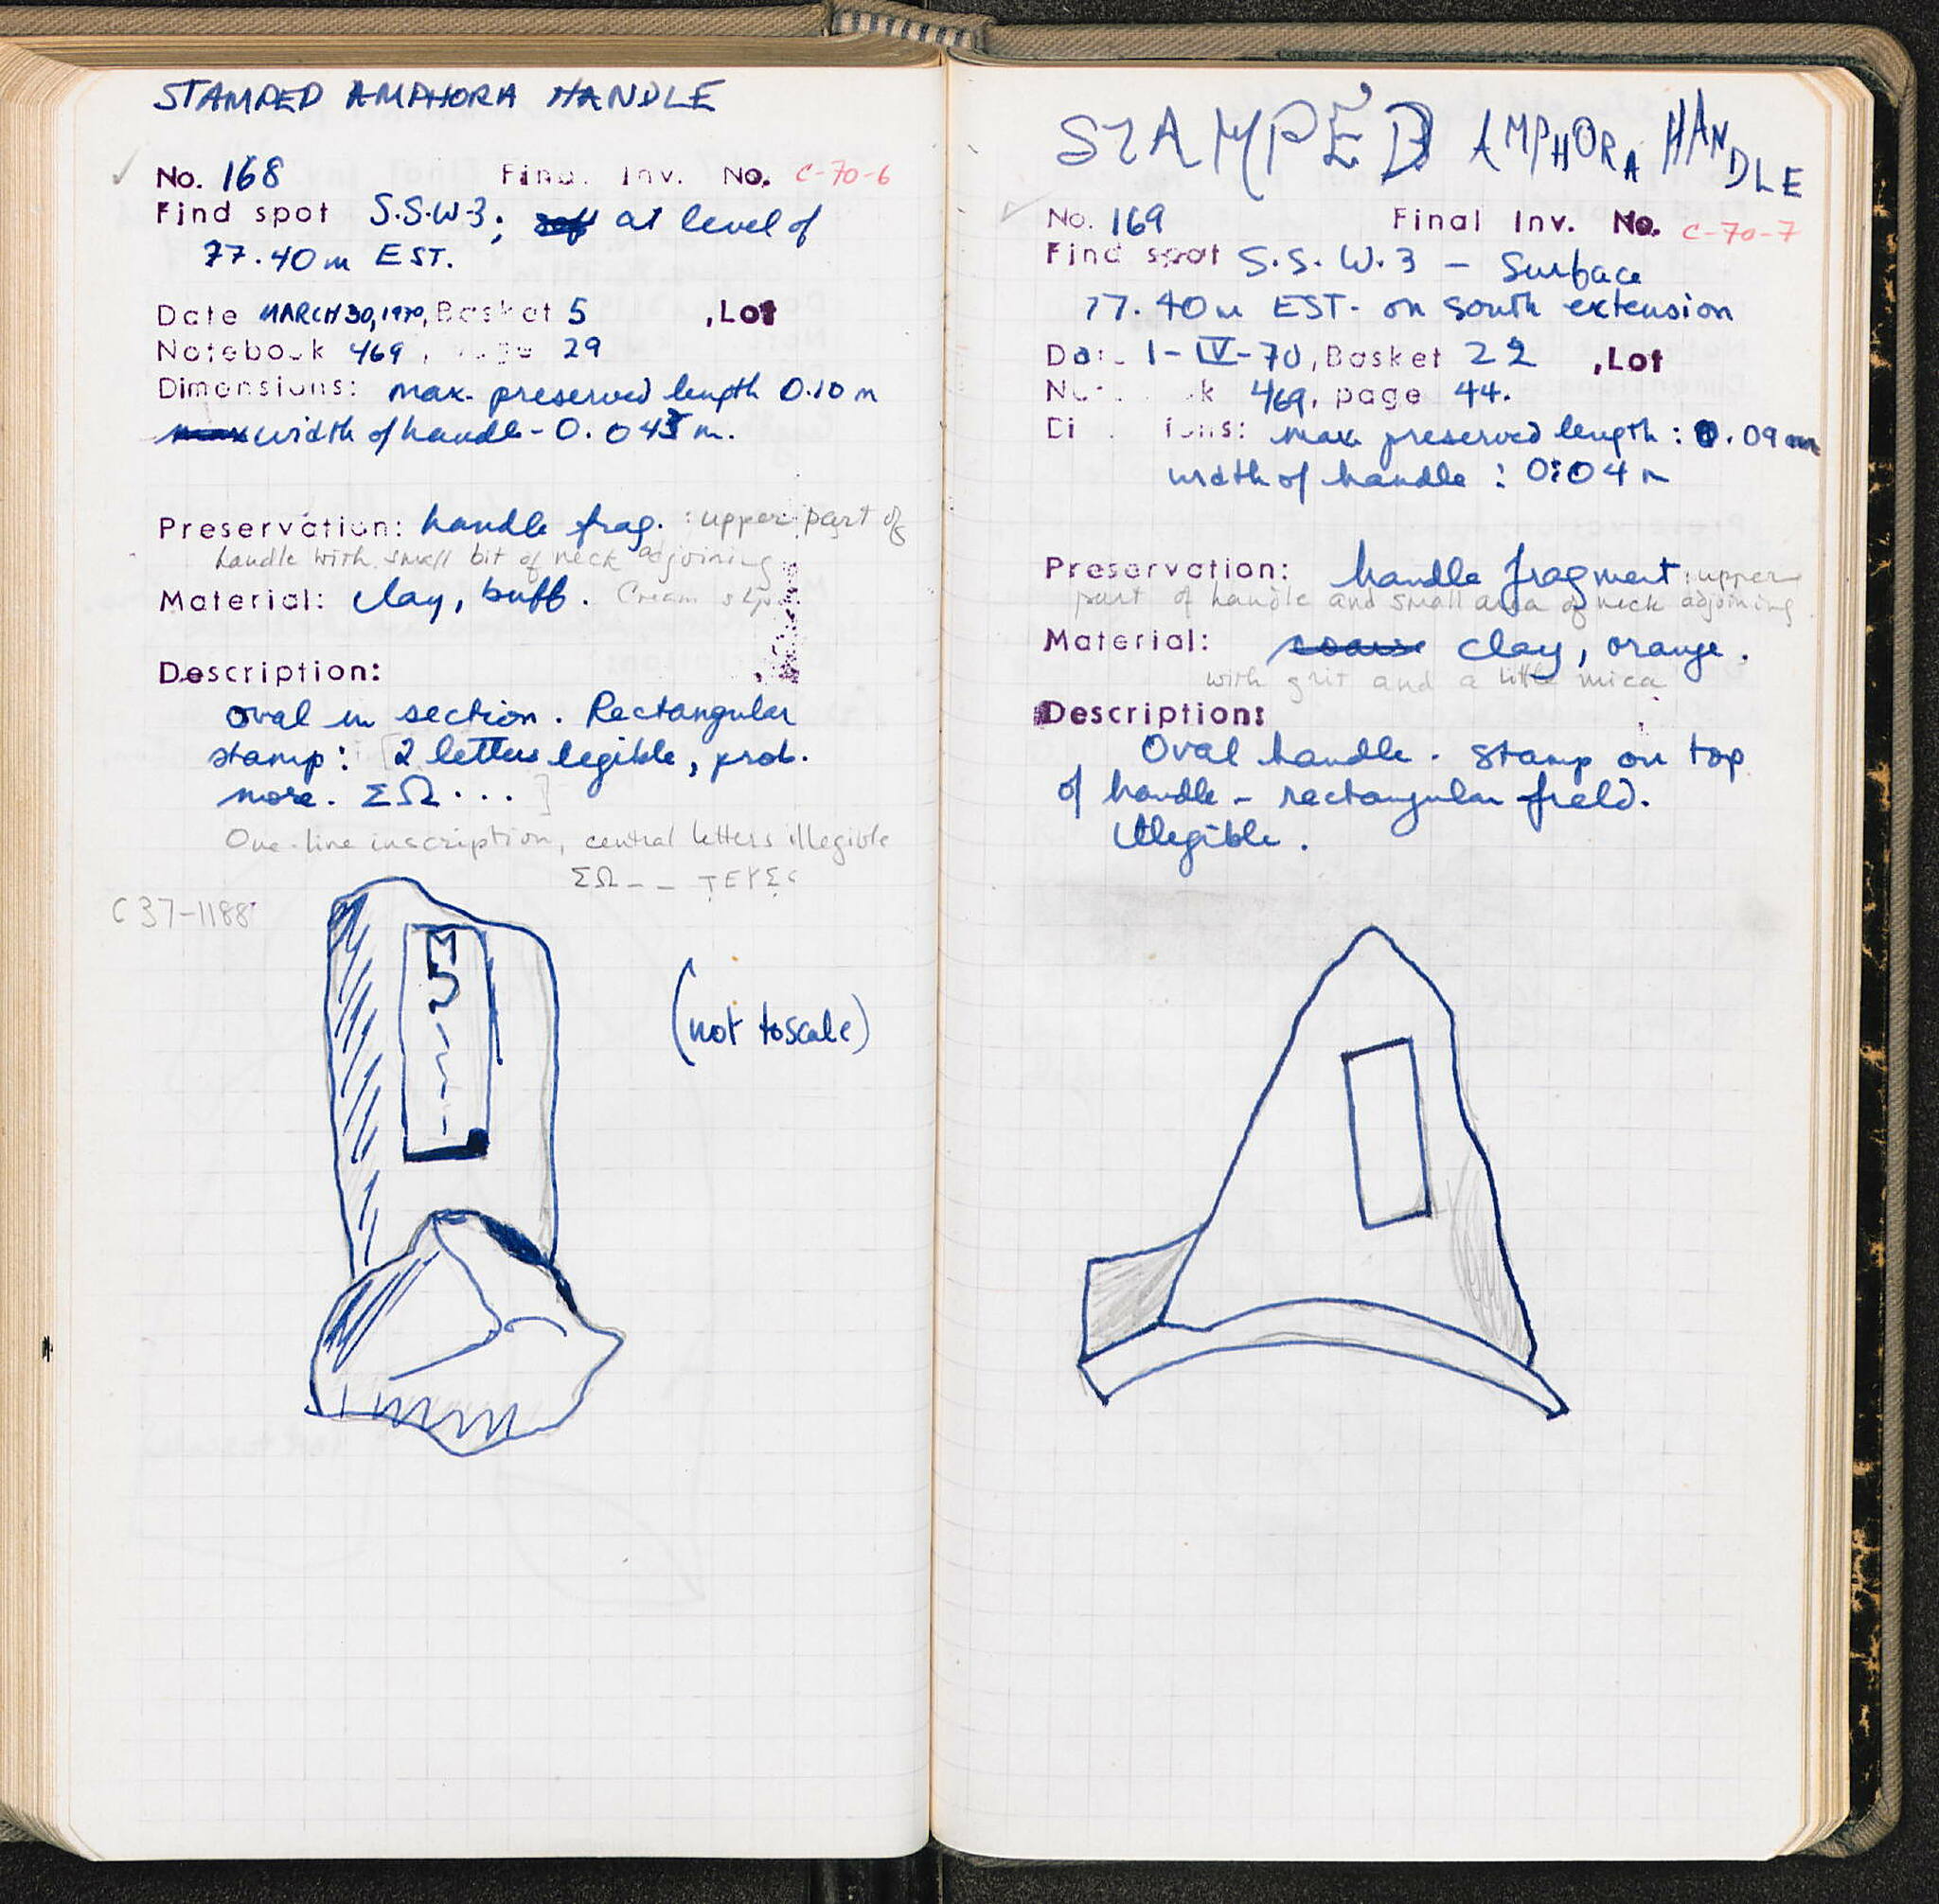 STAMPED AMPHORA HANDLE
No. 168 Final Inv. No. C-70-6
Find spot S.S.W-3; at level of
77.40m EST.
Date MARCH 30, 1970, Basket 5 , Lot
Notebook 469, page 29
Dimensions: max. preserved length 0.10 m
width of handle - 0.043 m.
Preservation: handle frag. : upper part of
handle with small bit of neck adjoining
Material: clay, buff. Cream slip
Description:
oval in section. Rectangular
stamp: [2 letters legible, prob.
more. ΣΩ...]
One-line inscription, central letters illegible
ΣΩ-- ΤΕΥΣ
C 37-1188
(not to scale)
STAMPED AMPHORA HANDLE
No. 169 Final Inv. No. C-70-7
Find spot S.S.W.3 - Surface
77.40m EST. on south extension
Date 1-IV-70, Basket 22 , Lot
Notebook 469, page 44.
Dimensions: max preserved length: 0.09m
width of handle: 0.04 m
Preservation: handle fragment: upper
part of handle and small area of neck adjoining.
Material: coarse clay, orange.
with grit and a little mica
Description:
Oval handle. Stamp on top
of handle - rectangular field.
Illegible.